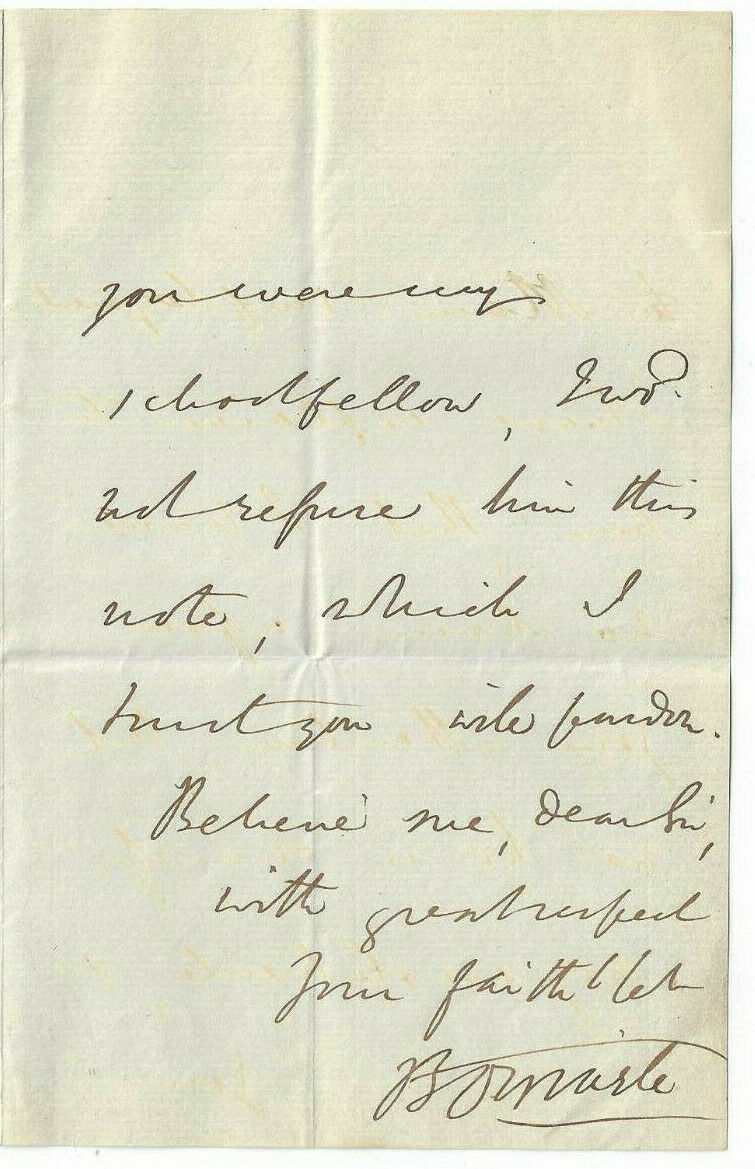 you were my
schoolfellow, I wd.
not refuse him this
note, which I
trust you will pardon.
Believe me, dear Sir,
with great respect
Your faithl